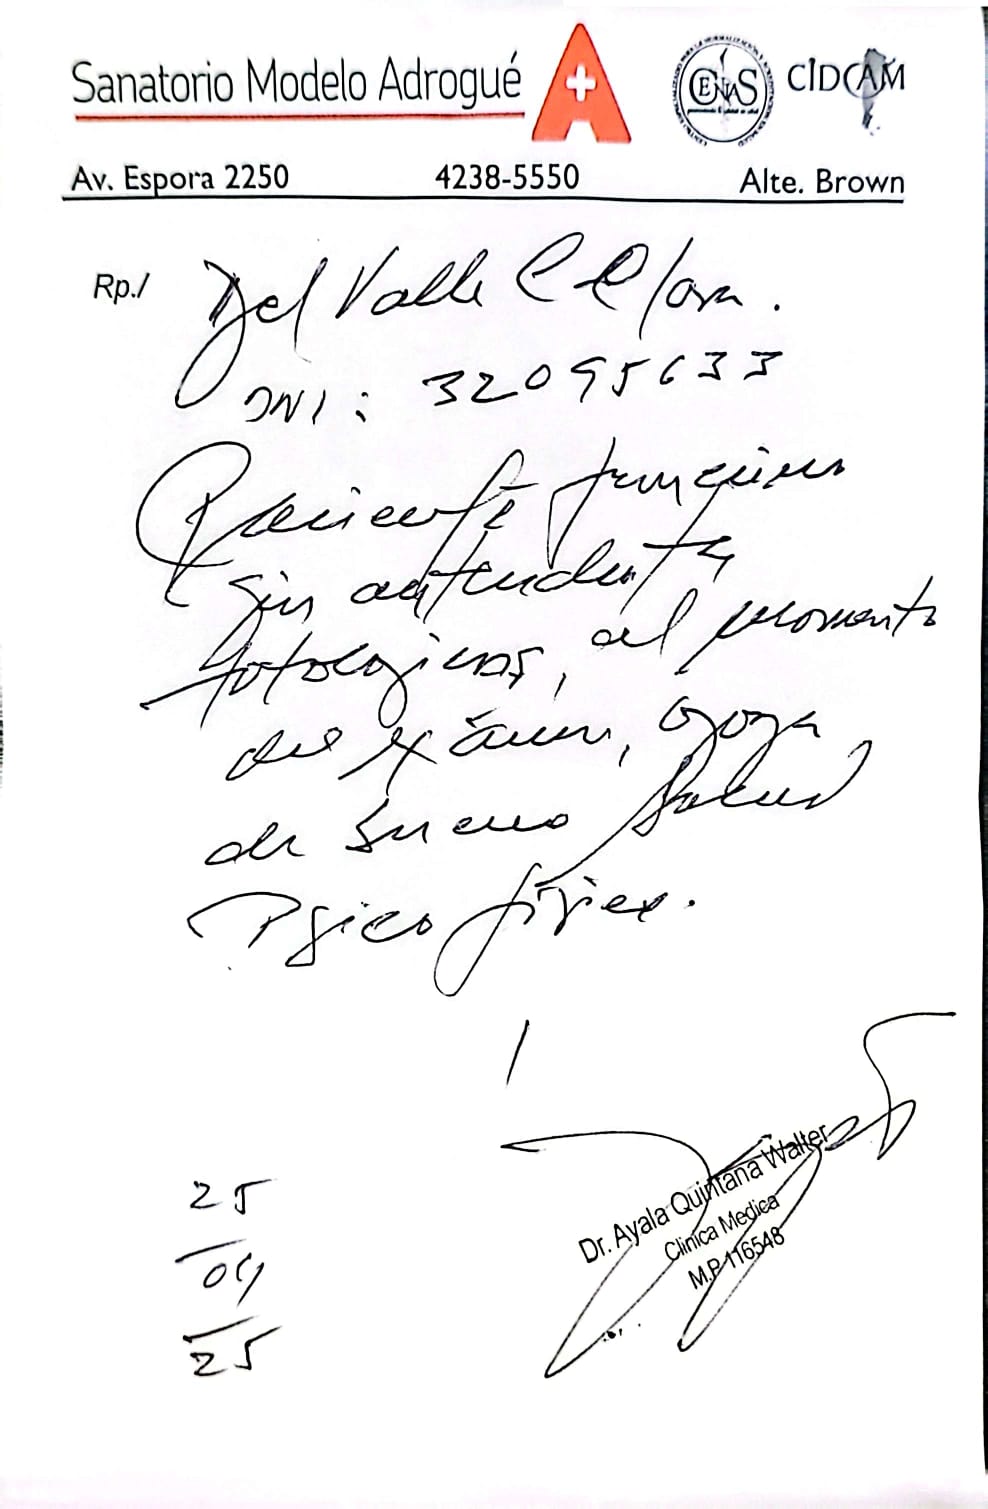 Sanatorio Modelo Adrogué
CENAS
CIDCAM
Av. Espora 2250 4238-5550 Alte. Brown
Rp./ Del Valle
DNI: 32095633
Paciente
sin antecedentes
patologicos, al momento
del exámen, goza
de buena salud
Psicofísica.
25
04
25
Dr. Ayala Quintana Walter
Clinica Medica
M.P. 116548